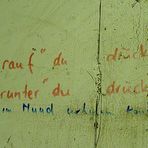 rauf" du drück
runter" du drück
Mund